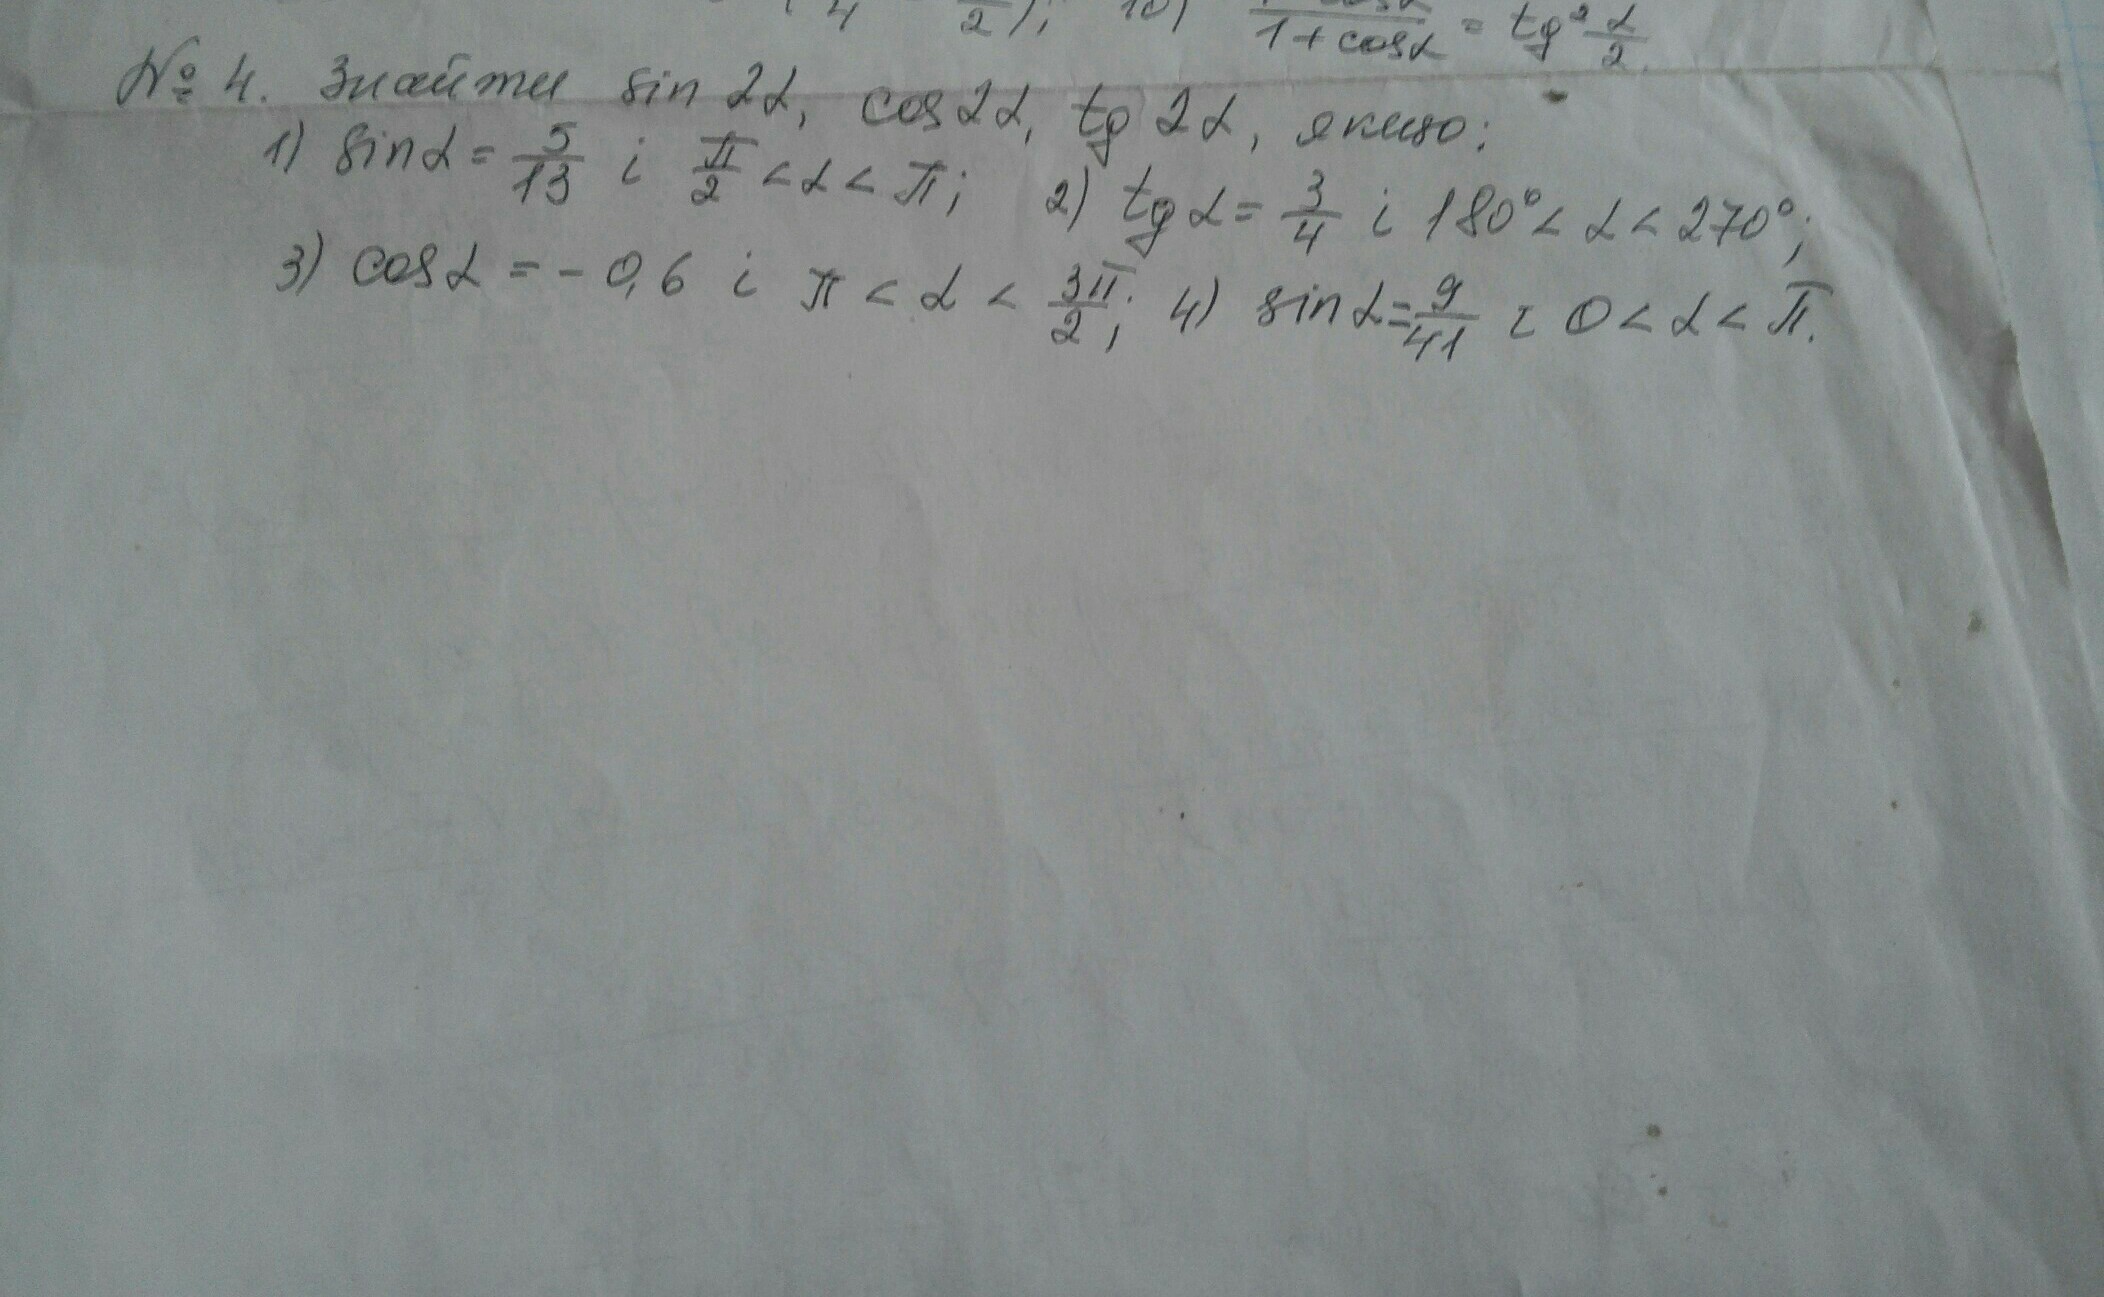 4 2); 10) 1+cosα = tg² α/2.
№ 4. Знайти sin 2α, cos 2α, tg 2α, якщо:
1) sin α = 5/13 і π/2 < α < π; 2) tg α = 3/4 і 180° < α < 270°;
3) cos α = - 0,6 і π < α < 3π/2; 4) sin α = 9/41 і 0 < α < π.